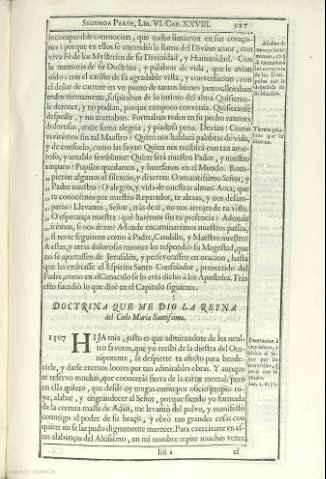 SEGUNDA PARTE, LIB. VI. CAP. XXVIII. 927
incomparable commocion, que todos sintieron en sus coraço-
nes; porque en ellos se encendiò la llama del Divino amor, con
viva Fè de los Mysterios de su Divinidad, y Humanidad. Con
la memoria de su Doctrina, y palabras de vida, que le avian
oìdo; con el cariño de su agradable vista, y conversacion; con
el dolor de carecer en un punto de tantos bienes juntos, lloraban
todos tiernamente, suspiraban de lo intimo del alma. Quisieran-
le detener, y no podian, porque tampoco convenia. Quisieranse
despedir, y no acertaban. Formaban todos en su pecho razones
dolorosas, entre suma alegria, y piadosa pena. Decian: Como
viviremos sin tal Maestro? Quien nos hablarà palabras de vida,
y de consuelo, como las suyas? Quien nos recibirà con tan amo-
roso, y amable semblante? Quien serà nuestro Padre, y nuestro
amparo? Pupilos quedamos, y huerfanos en el Mundo. Rom-
pieron algunos el silencio, y dixeron: O amantissimo Señor, y
„ Padre nuestro! O alegria, y vida de nuestras almas! Aora, que
te conocèmos por nuestro Reparador, te alexas, y nos desam-
paras! Llevanos, Señor, tràs de ti, no nos arrojes de tu vista.
„ O esperança nuestra! què harèmos sin tu presencia? Adonde
irèmos, si nos dexas? Adonde encaminarèmos nuestros passos,
„ si no te seguimos como à Padre, Caudillo, y Maestro nuestro?
A estas, y otras dolorosas razones les respondiò su Magestad, que
no se apartassen de Jerusalèn, y perseverassen en oracion, hasta
que les embiasse el Espiritu Santo Consolador, prometido del
Padre, como en el Cenaculo se lo avia dicho à los Apostoles. Tràs
esto sucediò lo que dirè en el Capitulo siguiente.
DOCTRINA QUE ME DIO LA REYNA
del Cielo Maria Santissima.
1507 HIJA mia, justo es que admirandote de los ocul-
tos favores, que yo recibì de la diestra del Om-
nipotente, se despierte tu afecto para bende-
cirle, y darle eternos loores por tan admirables obras. Y aunque
te reservo muchas, que conoceràs fuera de la carne mortal; pero
en ella quiero, que desde oy tengas como por oficio proprio tu-
yo, alabar, y engrandecer al Señor, porque siendo yo formada
de la comun massa de Adàn, me levantò del polvo, y manifestò
conmigo el poder de su braço, y obrò tan grandes cosas con
quien no se las pudo dignamente merecer. Para exercitarte en es-
tas alabanças del Altissimo, en mi nombre repite muchas veces
el